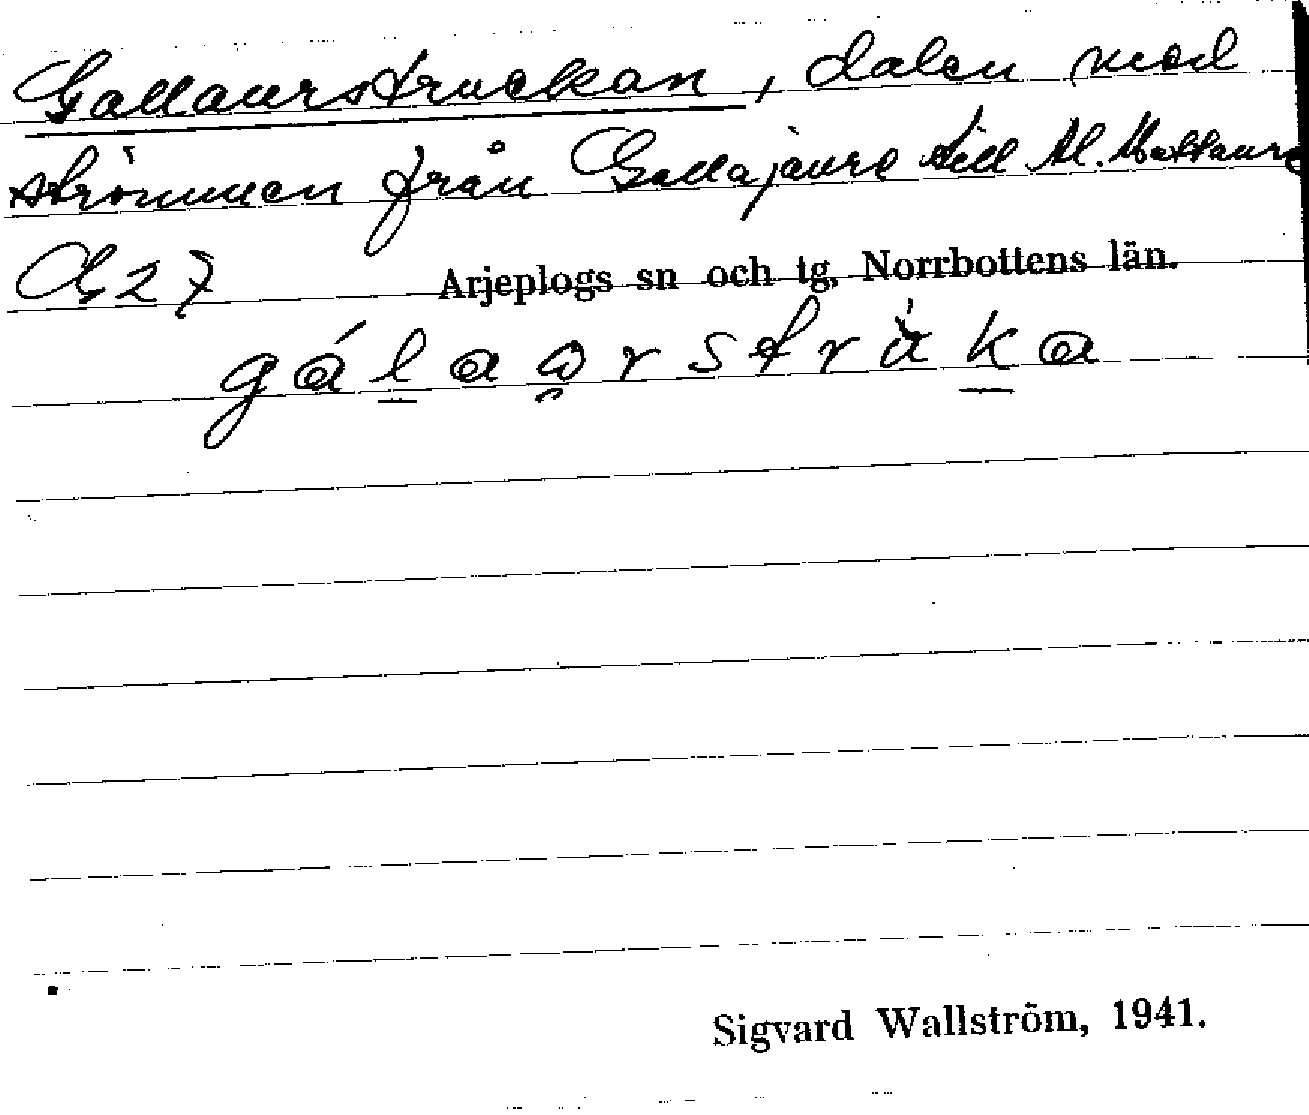 Gallaurstruckan, dalen med
strömmen från Gallajaure till
G 27 Arjeplogs sn och tg, Norrbottens län.
gálaωrstrùka
Sigvard Wallström, 1941.